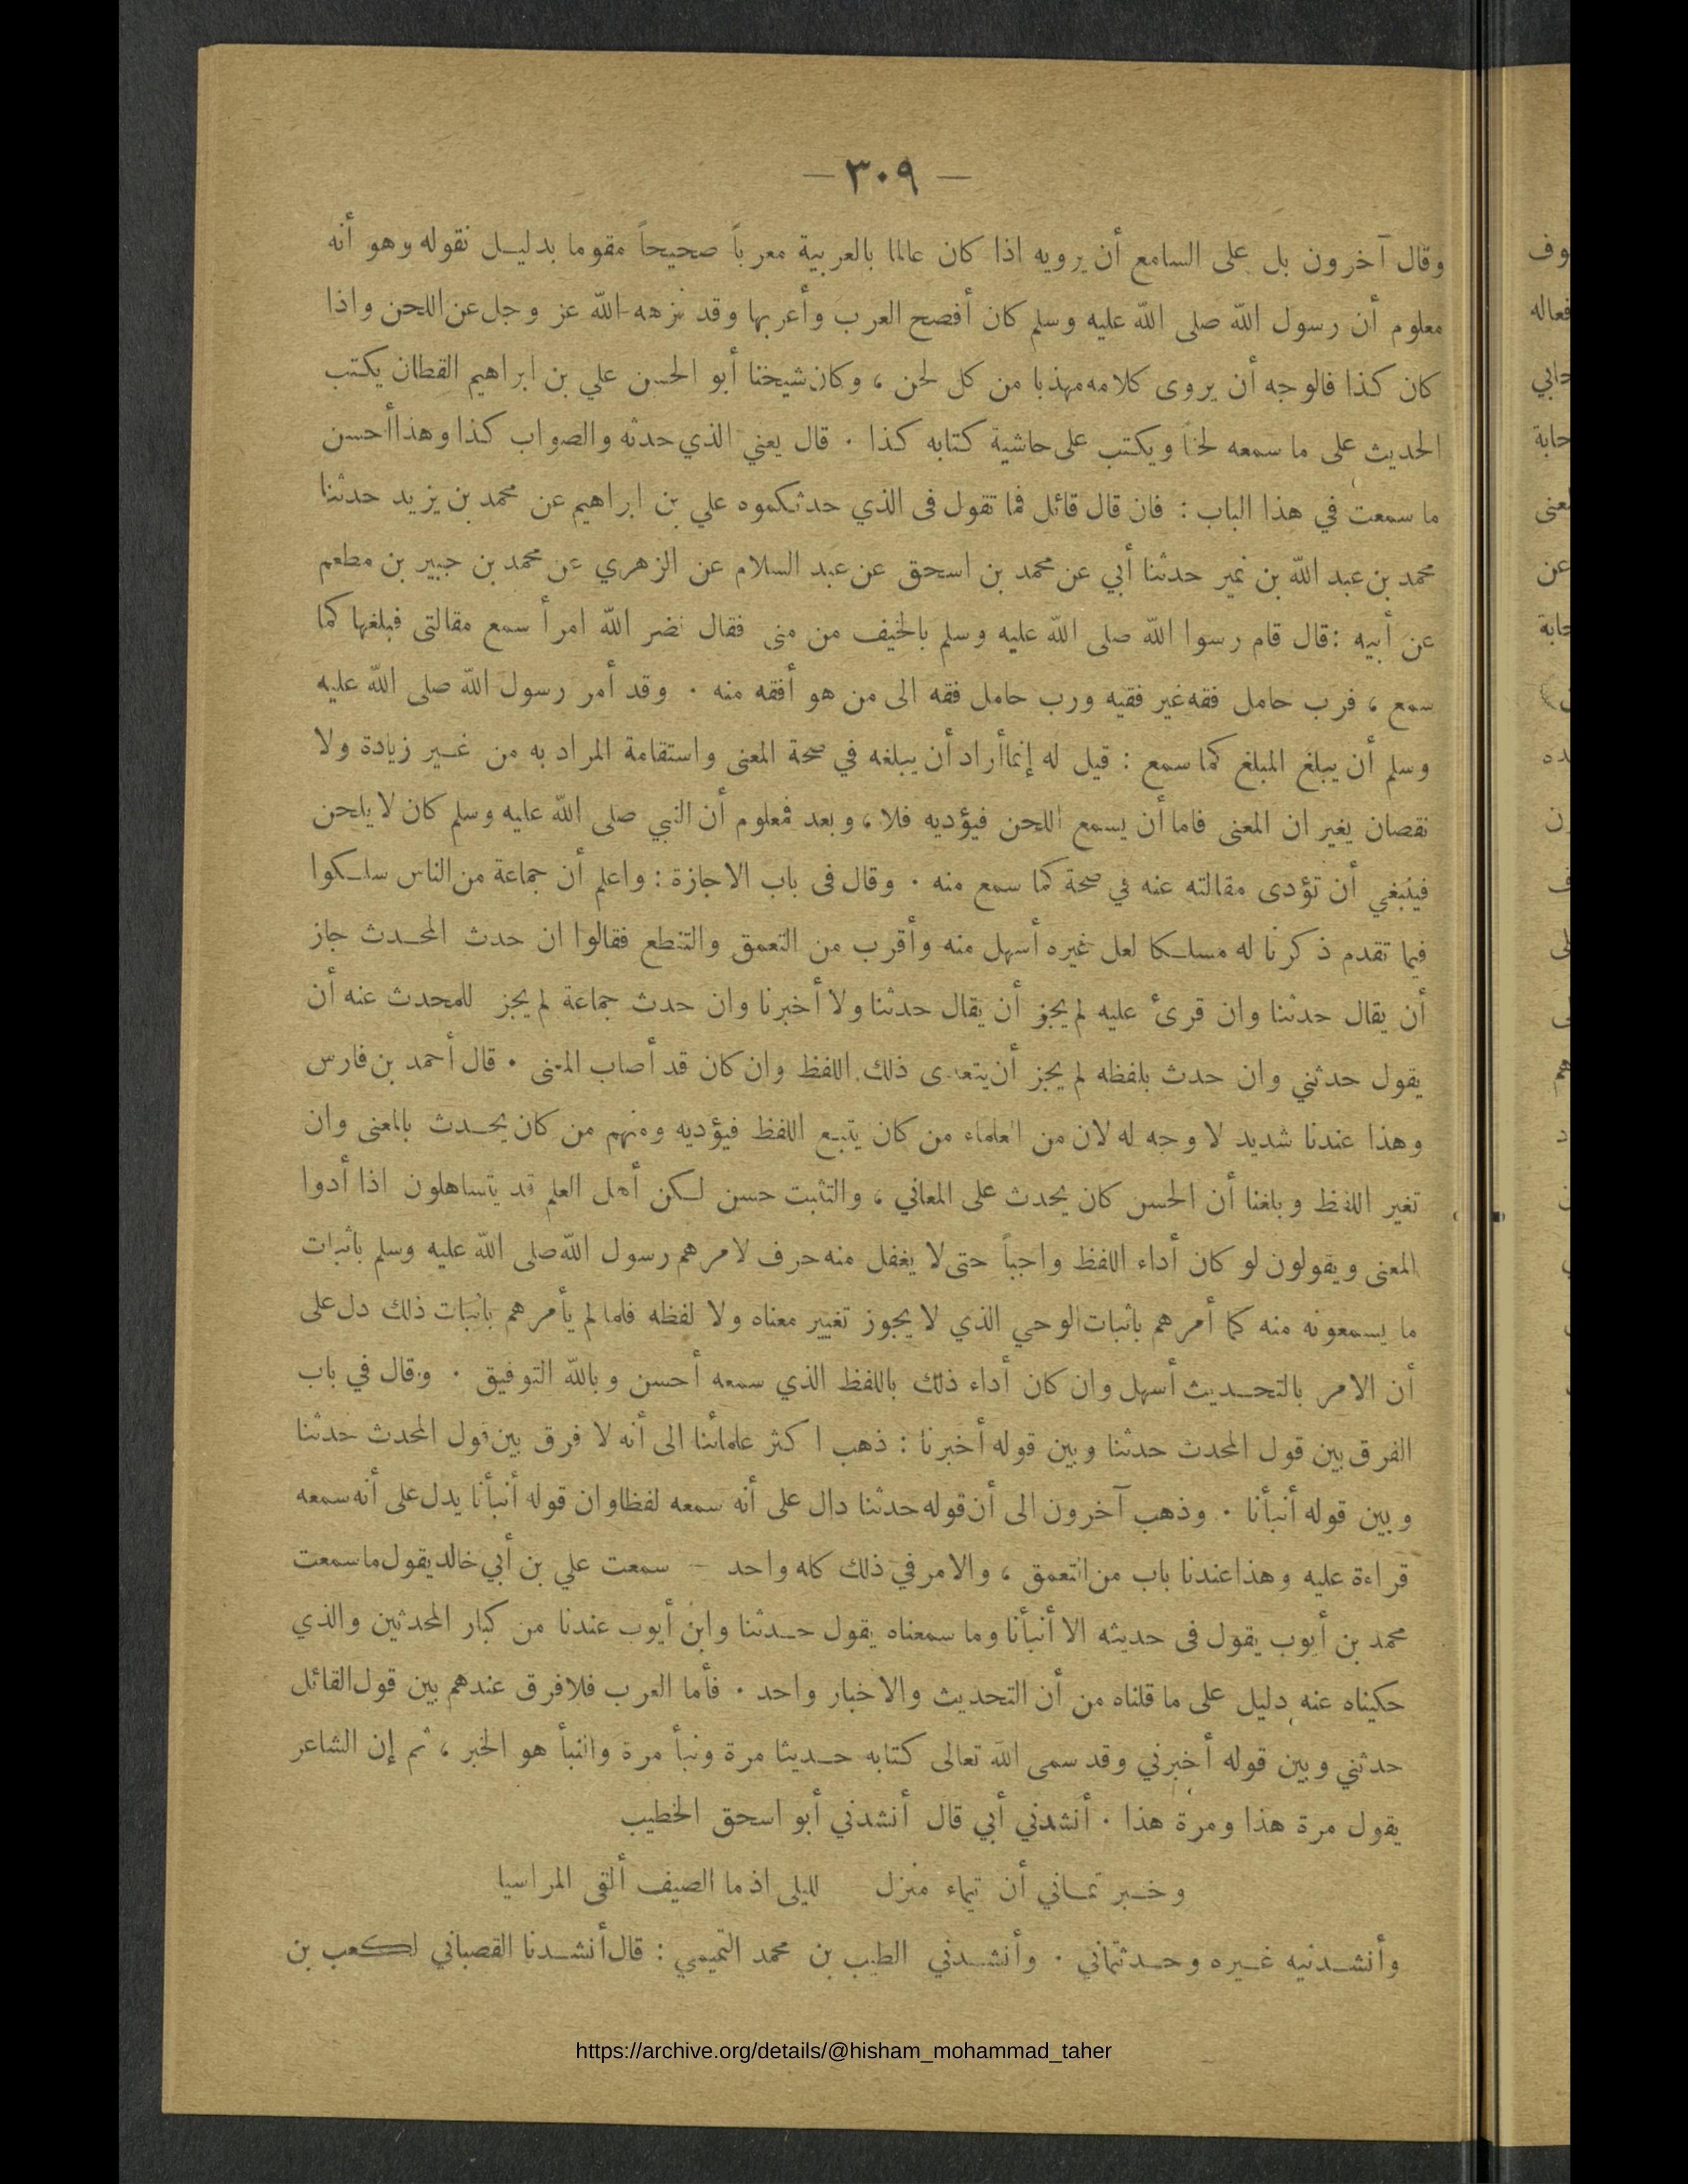 — ٣٠٩ —
وقال آخرون بل على السامع أن يرويه اذا كان عالما بالعربية معرباً صحيحاً مقوما بدليل نقوله وهو أنه
معلوم أن رسول الله صلى الله عليه وسلم كان أفصح العرب وأعربها وقد نزهه الله عز وجل عن اللحن واذا
كان كذا فالوجه أن يروى كلامه مهذبا من كل لحن ، وكان شيخنا أبو الحسن علي بن ابراهيم القطان يكتب
الحديث على ما سمعه لحناً ويكتب على حاشية كتابه كذا . قال يعني الذي حدثه والصواب كذا وهذا أحسن
ما سمعت في هذا الباب : فان قال قائل فما تقول فى الذي حدثكموه علي بن ابراهيم عن محمد بن يزيد حدثنا
محمد بن عبد الله بن نمير حدثنا أبي عن محمد بن اسحق عن عبد السلام عن الزهري عن محمد بن جبير بن مطعم
عن أبيه : قال قام رسوا الله صلى الله عليه وسلم بالخيف من منى فقال نضر الله امرأ سمع مقالتى فبلغها كما
سمع ، فرب حامل فقه غير فقيه ورب حامل فقه الى من هو أفقه منه . وقد أمر رسول الله صلى الله عليه
وسلم أن يبلغ المبلغ كما سمع : قيل له إنما أراد أن يبلغه في صحة المعنى واستقامة المراد به من غير زيادة ولا
نقصان يغيران المعنى فاما أن يسمع اللحن فيؤديه فلا ، وبعد فمعلوم أن النبي صلى الله عليه وسلم كان لا يلحن
فينبغي أن تؤدى مقالته عنه في صحة كما سمع منه . وقال فى باب الاجازة : واعلم أن جماعة من الناس سلكوا
فيما تقدم ذكرنا له مسلكا لعل غيره أسهل منه وأقرب من التعمق والتنطع فقالوا ان حدث المحدث جاز
أن يقال حدثنا وان قرئ عليه لم يجز أن يقال حدثنا ولا أخبرنا وان حدث جماعة لم يجز للمحدث عنه أن
يقول حدثني وان حدث بلفظه لم يجز أن يتعدى ذلك اللفظ وان كان قد أصاب المعنى . قال أحمد بن فارس
وهذا عندنا شديد لا وجه له لان من العلماء من كان يتبع اللفظ فيؤديه ومنهم من كان يحدث بالمعنى وان
تغير اللفظ وبلغنا أن الحسن كان يحدث على المعاني ، والتثبت حسن لكن أهل العلم قد يتساهلون اذا أدوا
المعنى ويقولون لو كان أداء اللفظ واجباً حتى لا يغفل منه حرف لامرهم رسول الله صلى الله عليه وسلم باثبات
ما يسمعونه منه كما أمرهم باثبات الوحي الذي لا يجوز تغيير معناه ولا لفظه فلما لم يأمرهم باثبات ذلك دل على
أن الامر بالتحديث أسهل وان كان أداء ذلك باللفظ الذي سمعه أحسن وبالله التوفيق . وقال في باب
الفرق بين قول المحدث حدثنا وبين قوله أخبرنا : ذهب اكثر علمائنا الى أنه لا فرق بين قول المحدث حدثنا
وبين قوله أنبأنا . وذهب آخرون الى أن قوله حدثنا دال على أنه سمعه لفظا وان قوله أنبأنا يدل على أنه سمعه
قراءة عليه وهذا عندنا باب من التعمق ، والامر في ذلك كله واحد – سمعت علي بن أبي خالد يقول ما سمعت
محمد بن أيوب يقول فى حديثه الا أنبأنا وما سمعناه يقول حدثنا وابن أيوب عندنا من كبار المحدثين والذي
حكيناه عنه دليل على ما قلناه من أن التحديث والاخبار واحد . فأما العرب فلا فرق عندهم بين قول القائل
حدثني وبين قوله أخبرني وقد سمى الله تعالى كتابه حديثا مرة ونبأ مرة والنبأ هو الخبر ، ثم إن الشاعر
يقول مرة هذا ومرة هذا . أنشدني أبي قال أنشدني أبو اسحق الخطيب
وخبر تماني أن تيماء منزل لليلى اذ ما الصيف ألقى المراسيا
وأنشدنيه غيره وحدثتماني . وأنشدني الطيب بن محمد التميمي : قال أنشدنا القصباني لكعب بن
https://archive.org/details/@hisham_mohammad_taher